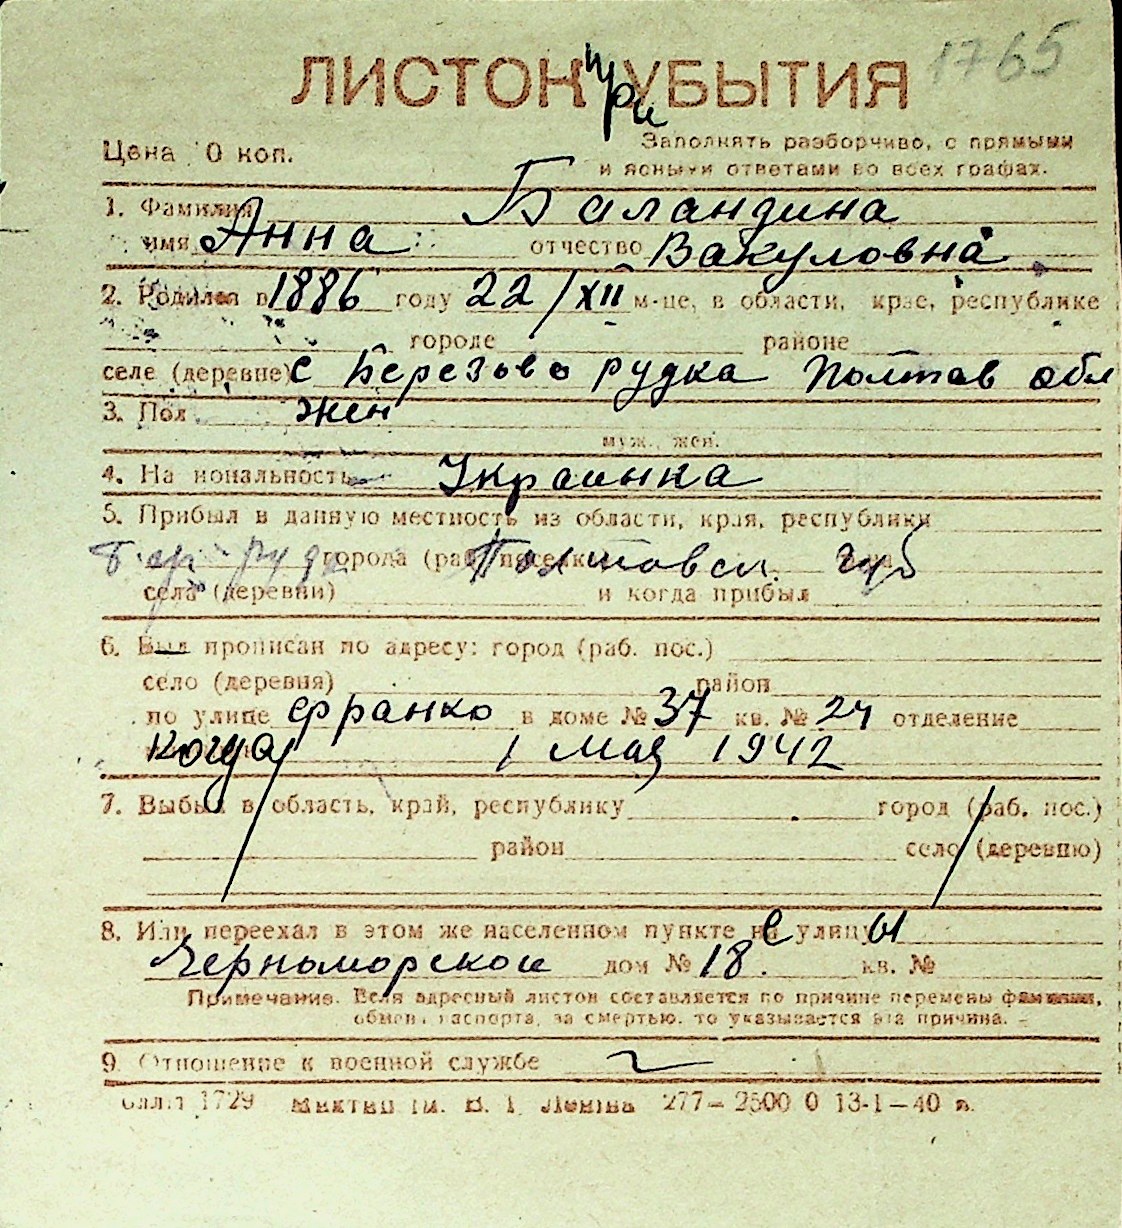 1765
ЛИСТОК при УБЫТИЯ
Цена 0 коп.
Заполнять разборчиво, с прямыми
и ясными ответами во всех графах.
1. Фамилия Баландина
имя Анна отчество Вакуловна
2. Родился в 1886 году 22/XII м-це, в области, крае, республике
городе районе
селе (деревне) с Березова рудка Полтав обл
3. Пол жен
муж., жен.
4. Национальность Украинка
5. Прибыл в данную местность из области, края, республики
города (раб. поселка) Полтавск. губ
села (деревни) и когда прибыл
6. Был прописан по адресу: город (раб. пос.)
село (деревня) район
по улице Франко в доме № 37 кв. № 24 отделение
Когда 1 Мая 1942
7. Выбыл в область, край, республику город (раб. пос.)
район село (деревню)
8. Или переехал в этом же населенном пункте с улицы
Черноморской дом № 18. кв. №
Примечание. Если адресный листок составляется по причине перемены фамилии,
обмена паспорта, за смертью, то указывается эта причина.
9. Отношение к военной службе
1729 277—2500 0 13-1—40 г.